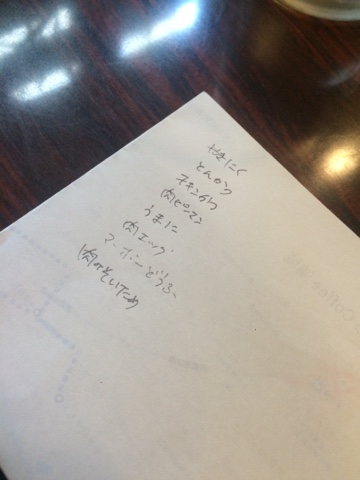 やきにく
とんかつ
チキンかつ
肉ピーマン
うまに
肉エッグ
マーボーどうふ
肉みそいため